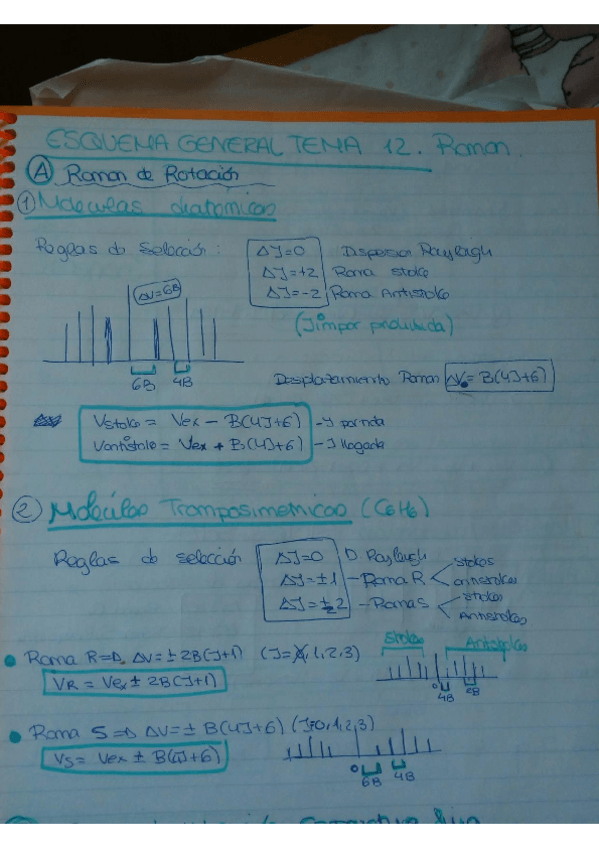 ESQUEMA GENERAL TEMA 12. Raman.
A Raman de Rotación
1 Moléculas diatómicas
Reglas de Selección: ΔJ=0 Dispersion Rayleigh
ΔJ=+2 Rama Stokes
ΔJ=-2 Rama Antistokes
(J impar prohibida)
ΔV=6B
6B 4B
Desplazamiento Raman ΔV= B(4J+6)
Vstokes = Vex - B(4J+6) - J partida
Vantistoke = Vex + B(4J+6) - J llegada
2 Moléculas Tromposimetricas (C6H6)
Reglas de selección ΔJ=0 D. Rayleigh
ΔJ=±1 - Rama R < stokes
antistokes
ΔJ=±2 - Rama S < stokes
Antistokes
Stokes Antistokes
Rama R=D ΔV=±2B(J+1) (J= 1,2,3)
VR = Vex ± 2B(J+1)
4B 2B
Rama S=D ΔV=± B(4J+6) (J=0,1,2,3)
VS= Vex ± B(4J+6)
6B 4B